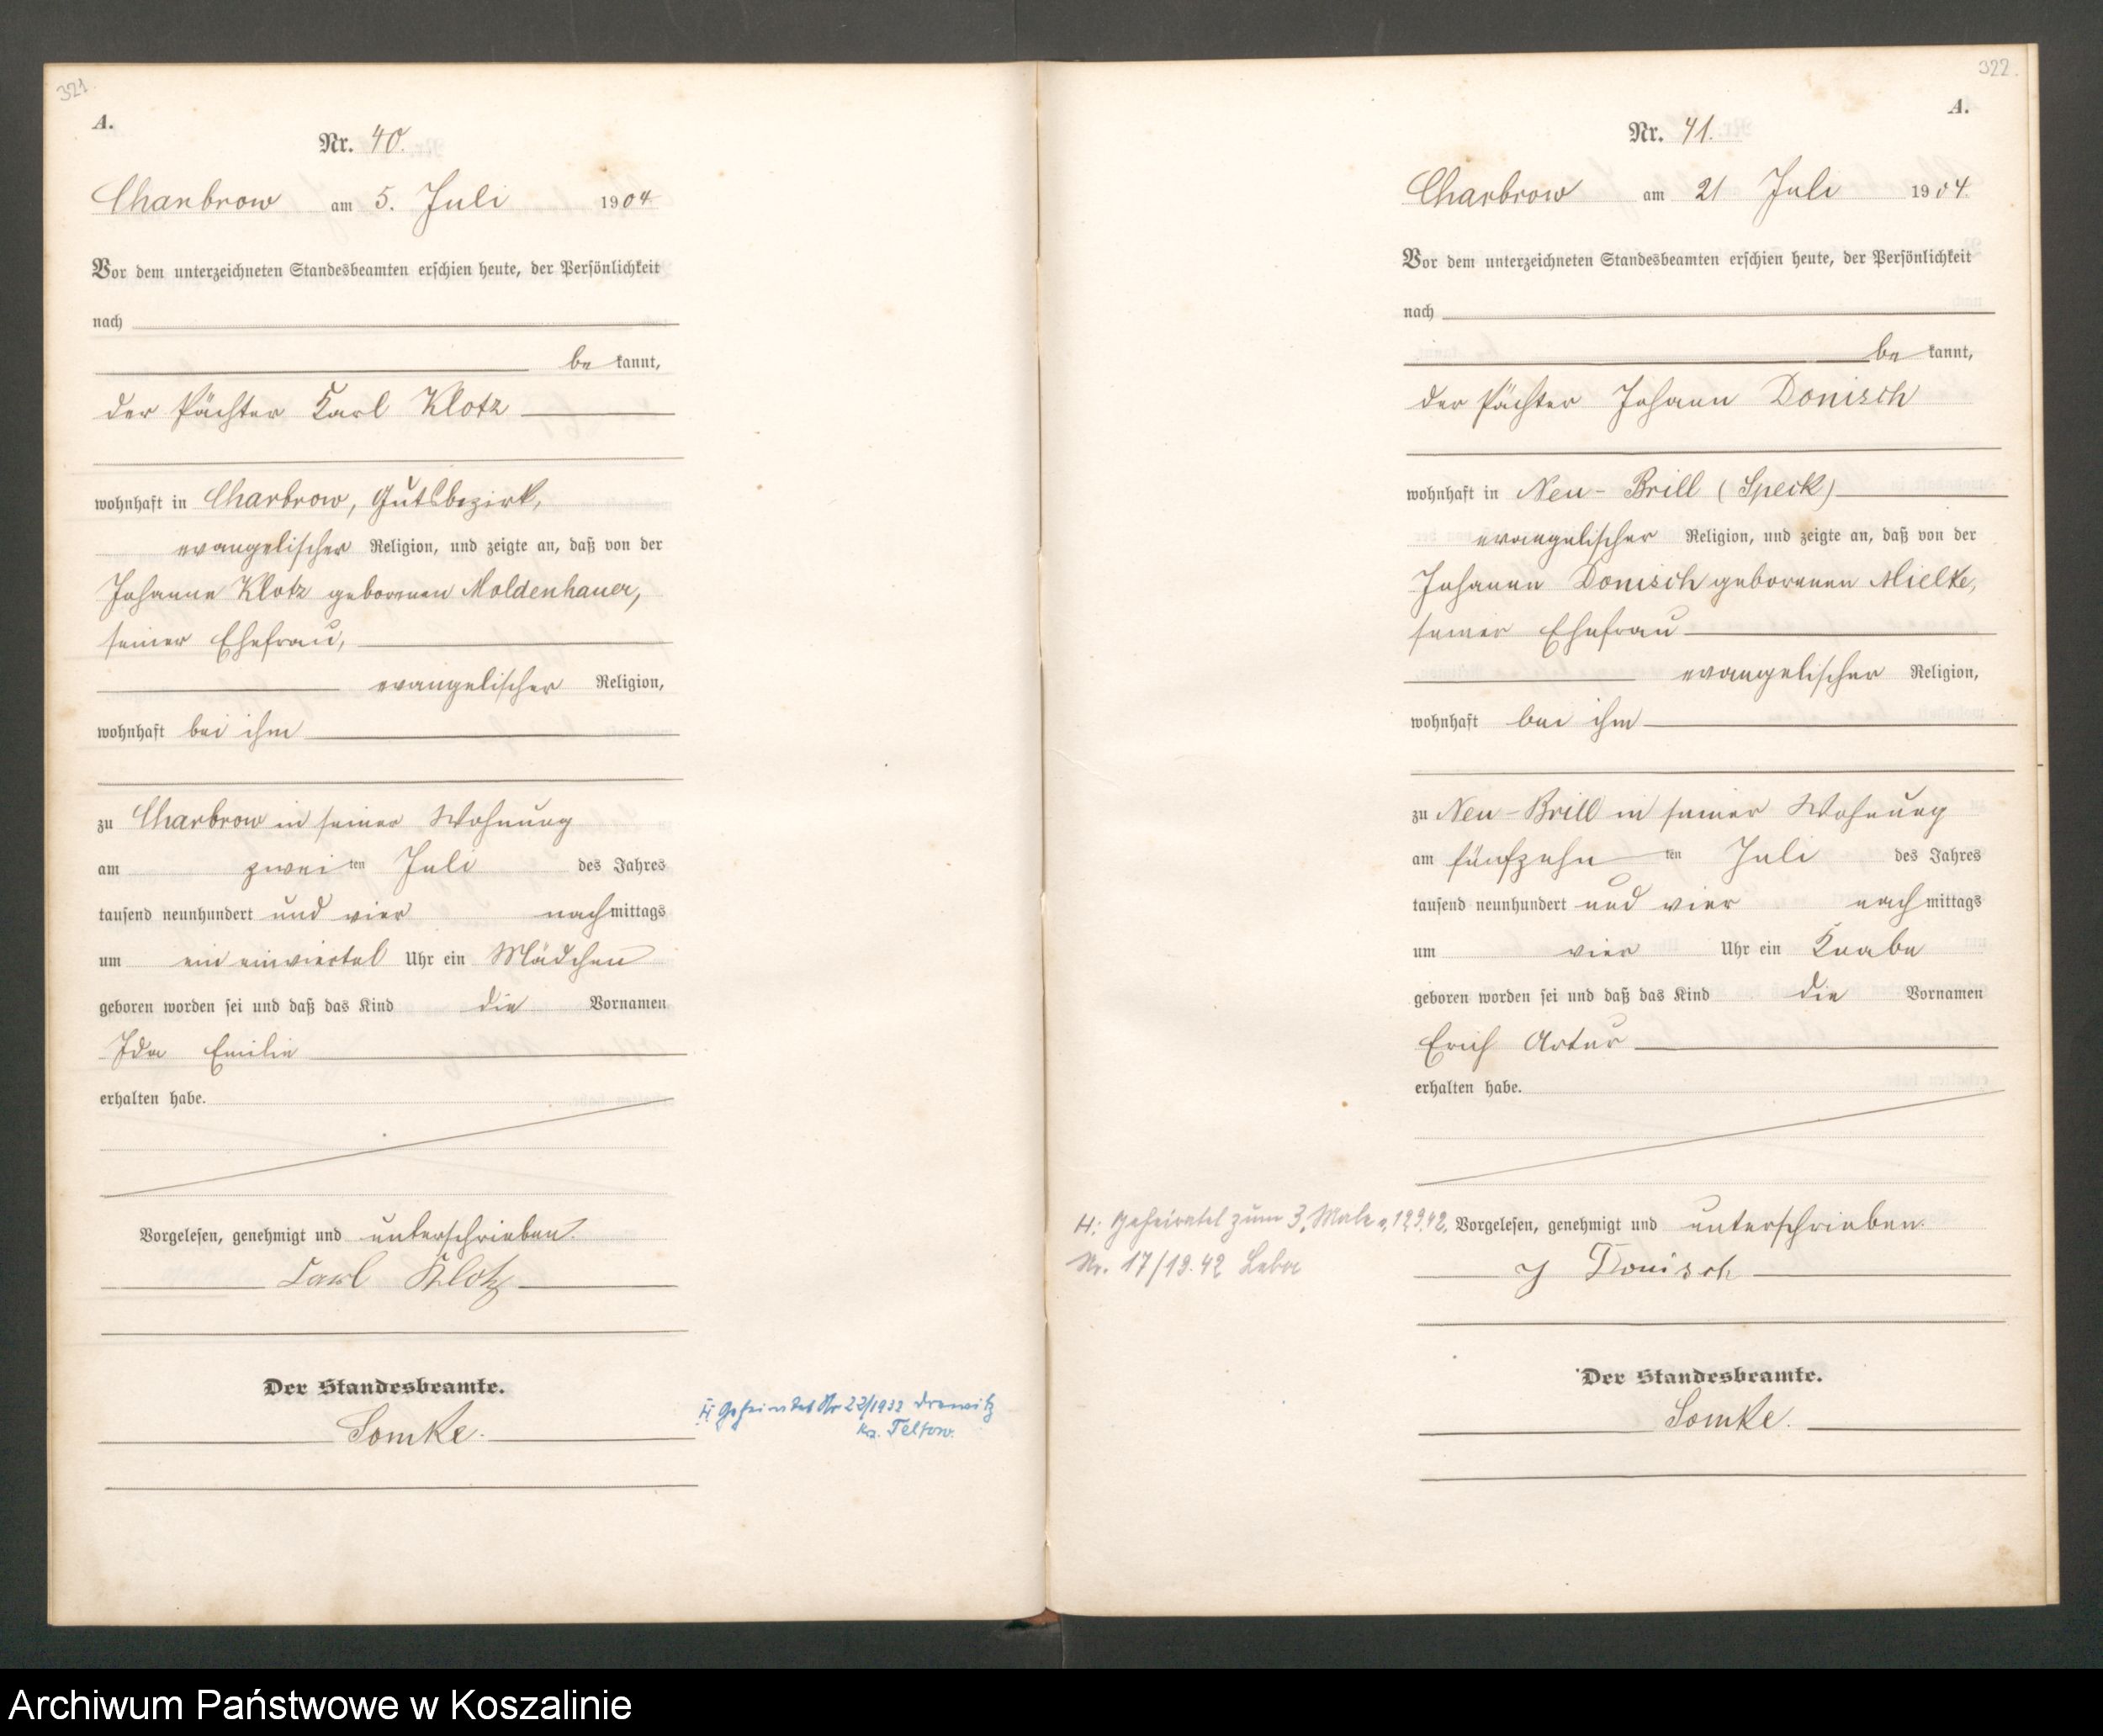 321.
A.
Nr. 40.
Charbrow am 5. Juli 1904
Vor dem unterzeichneten Standesbeamten erschien heute, der Persönlichkeit
nach
be kannt,
der Pächter Karl Klotz
wohnhaft in Charbrow, Gutsbezirk,
evangelischer Religion, und zeigte an, daß von der
Johanne Klotz geborenen Moldenhauer,
seiner Ehefrau,
evangelischer Religion,
wohnhaft bei ihm
zu Charbrow in seiner Wohnung
am zwei ten Juli des Jahres
tausend neunhundert und vier nachmittags
um ein einviertel Uhr ein Mädchen
geboren worden sei und daß das Kind die Vornamen
Ida Emilie
erhalten habe.
Vorgelesen, genehmigt und unterschrieben.
Carl Klotz
Der Standesbeamte.
Somke.
H. Geheiratet Nr 22/1932 Drewitz
Kr. Teltow.
322.
A.
Nr. 41.
Charbrow am 21 Juli 1904.
Vor dem unterzeichneten Standesbeamten erschien heute, der Persönlichkeit
nach
be kannt,
der Pächter Johann Donisch
wohnhaft in Neu-Brill (Speck)
evangelischer Religion, und zeigte an, daß von der
Johanne Donisch geborenen Mielke,
seiner Ehefrau
evangelischer Religion,
wohnhaft bei ihm
zu Neu-Brill in seiner Wohnung
am fünfzehn ten Juli des Jahres
tausend neunhundert und vier nachmittags
um vier Uhr ein Knabe
geboren worden sei und daß das Kind die Vornamen
Erich Artur
erhalten habe.
H: Geheiratet zum 3. Male 12.9.42.
Nr. 17/19.42 Leba
Vorgelesen, genehmigt und unterschrieben.
J Donisch
Der Standesbeamte.
Somke.
Archiwum Państwowe w Koszalinie